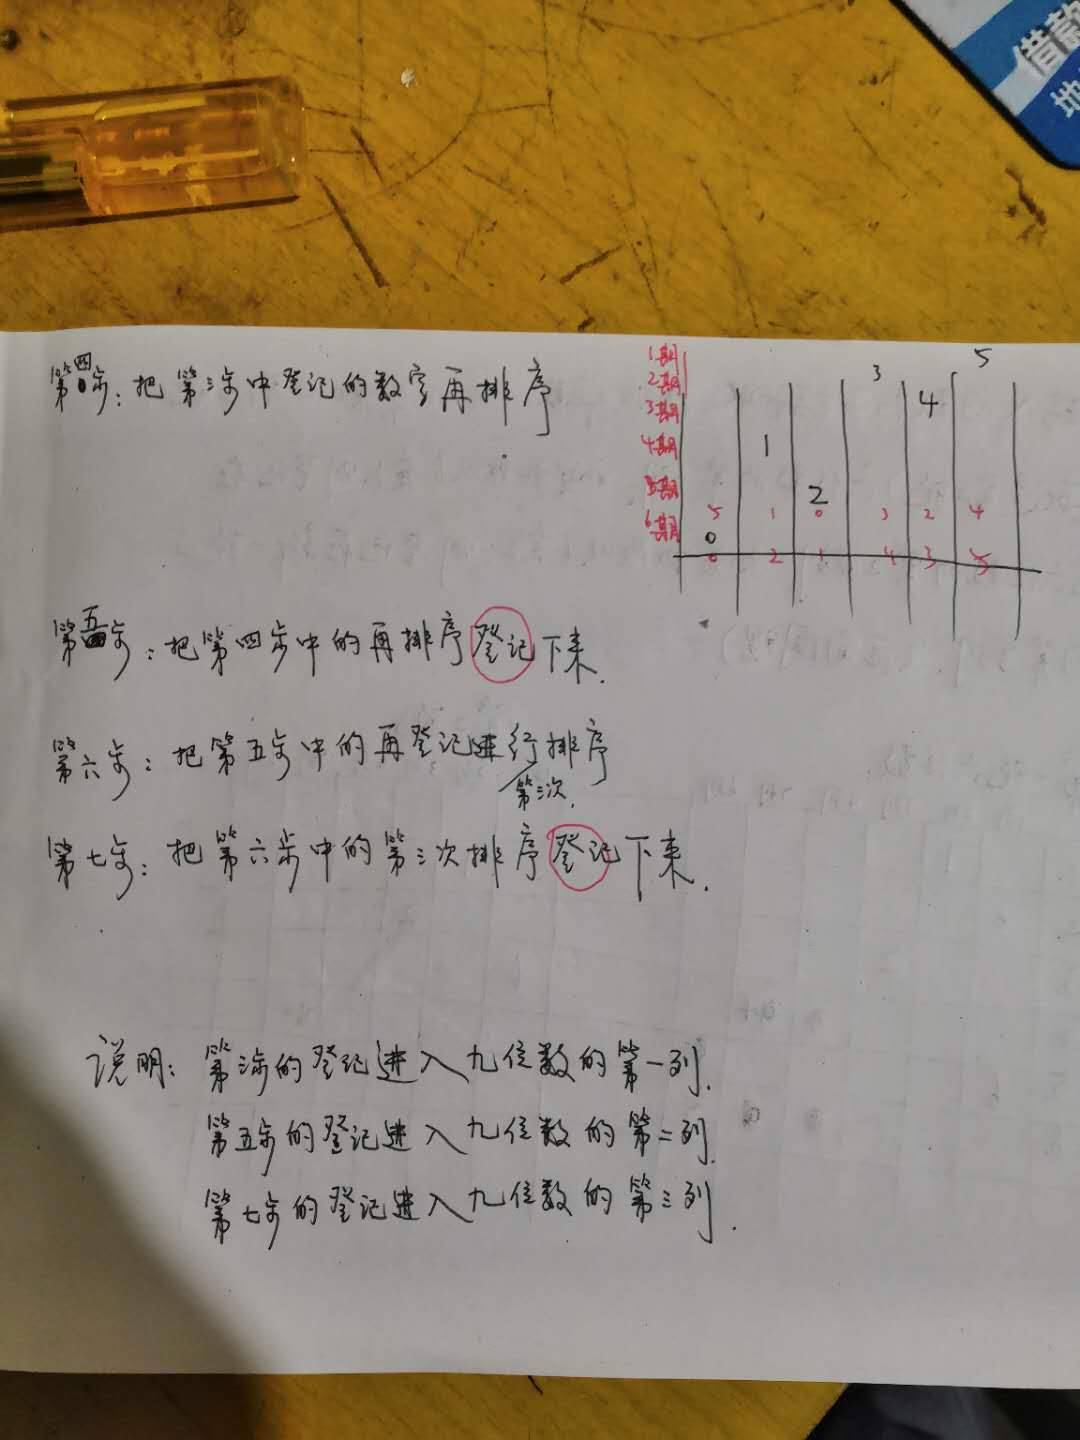 借款
地
第四步：把第三步中登记的数字再排序
1期
2期
3期
4期
5期
6期
5
3
4
1
2
5 1 0 3 2 4
0
0 2 1 4 3 5
第五步：把第四步中的再排序登记下来.
第六步：把第五步中的再登记进行排序
第三次.
第七步：把第六步中的第三次排序登记下来.
说明：第三步的登记进入九位数的第一列.
第五步的登记进入九位数的第二列.
第七步的登记进入九位数的第三列.